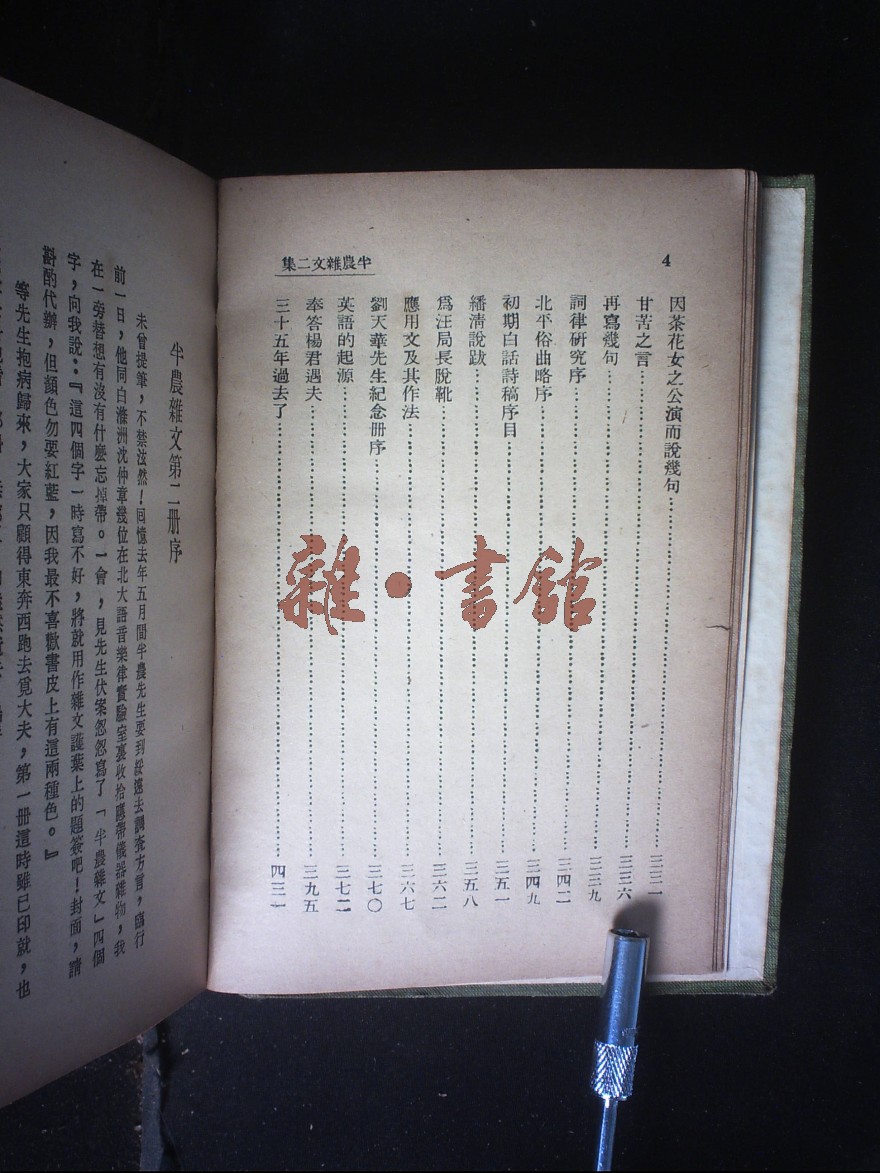 4
半農雜文二集
因茶花女之公演而說幾句……三三一
甘苦之言……三三六
再寫幾句……三三九
詞律研究序……三四二
北平俗曲略序……三四九
初期白話詩稿序目……三五一
繙淸說跋……三五八
爲汪局長脫靴……三六二
應用文及其作法……三六七
劉天華先生紀念册序……三七〇
英語的起源……三七二
奉答楊君遇夫……三九五
三十五年過去了……四三一
雜·書館
半農雜文第二册序
未曾提筆，不禁泫然！回憶去年五月間半農先生要到綏遠去調查方言，臨行
前一日，他同白滌洲沈仲章幾位在北大語音樂律實驗室裏收拾應帶儀器雜物，我
在一旁替想有沒有什麼忘掉帶。一會，見先生伏案怱怱寫了「半農雜文」四個
字，向我說：『這四個字一時寫不好，將就用作雜文護葉上的題簽吧！封面，請
斟酌代辦，但顏色勿要紅藍，因我最不喜歡書皮上有這兩種色。』
等先生抱病歸來，大家只顧得東奔西跑去覓大夫，第一册這時雖已印就，也